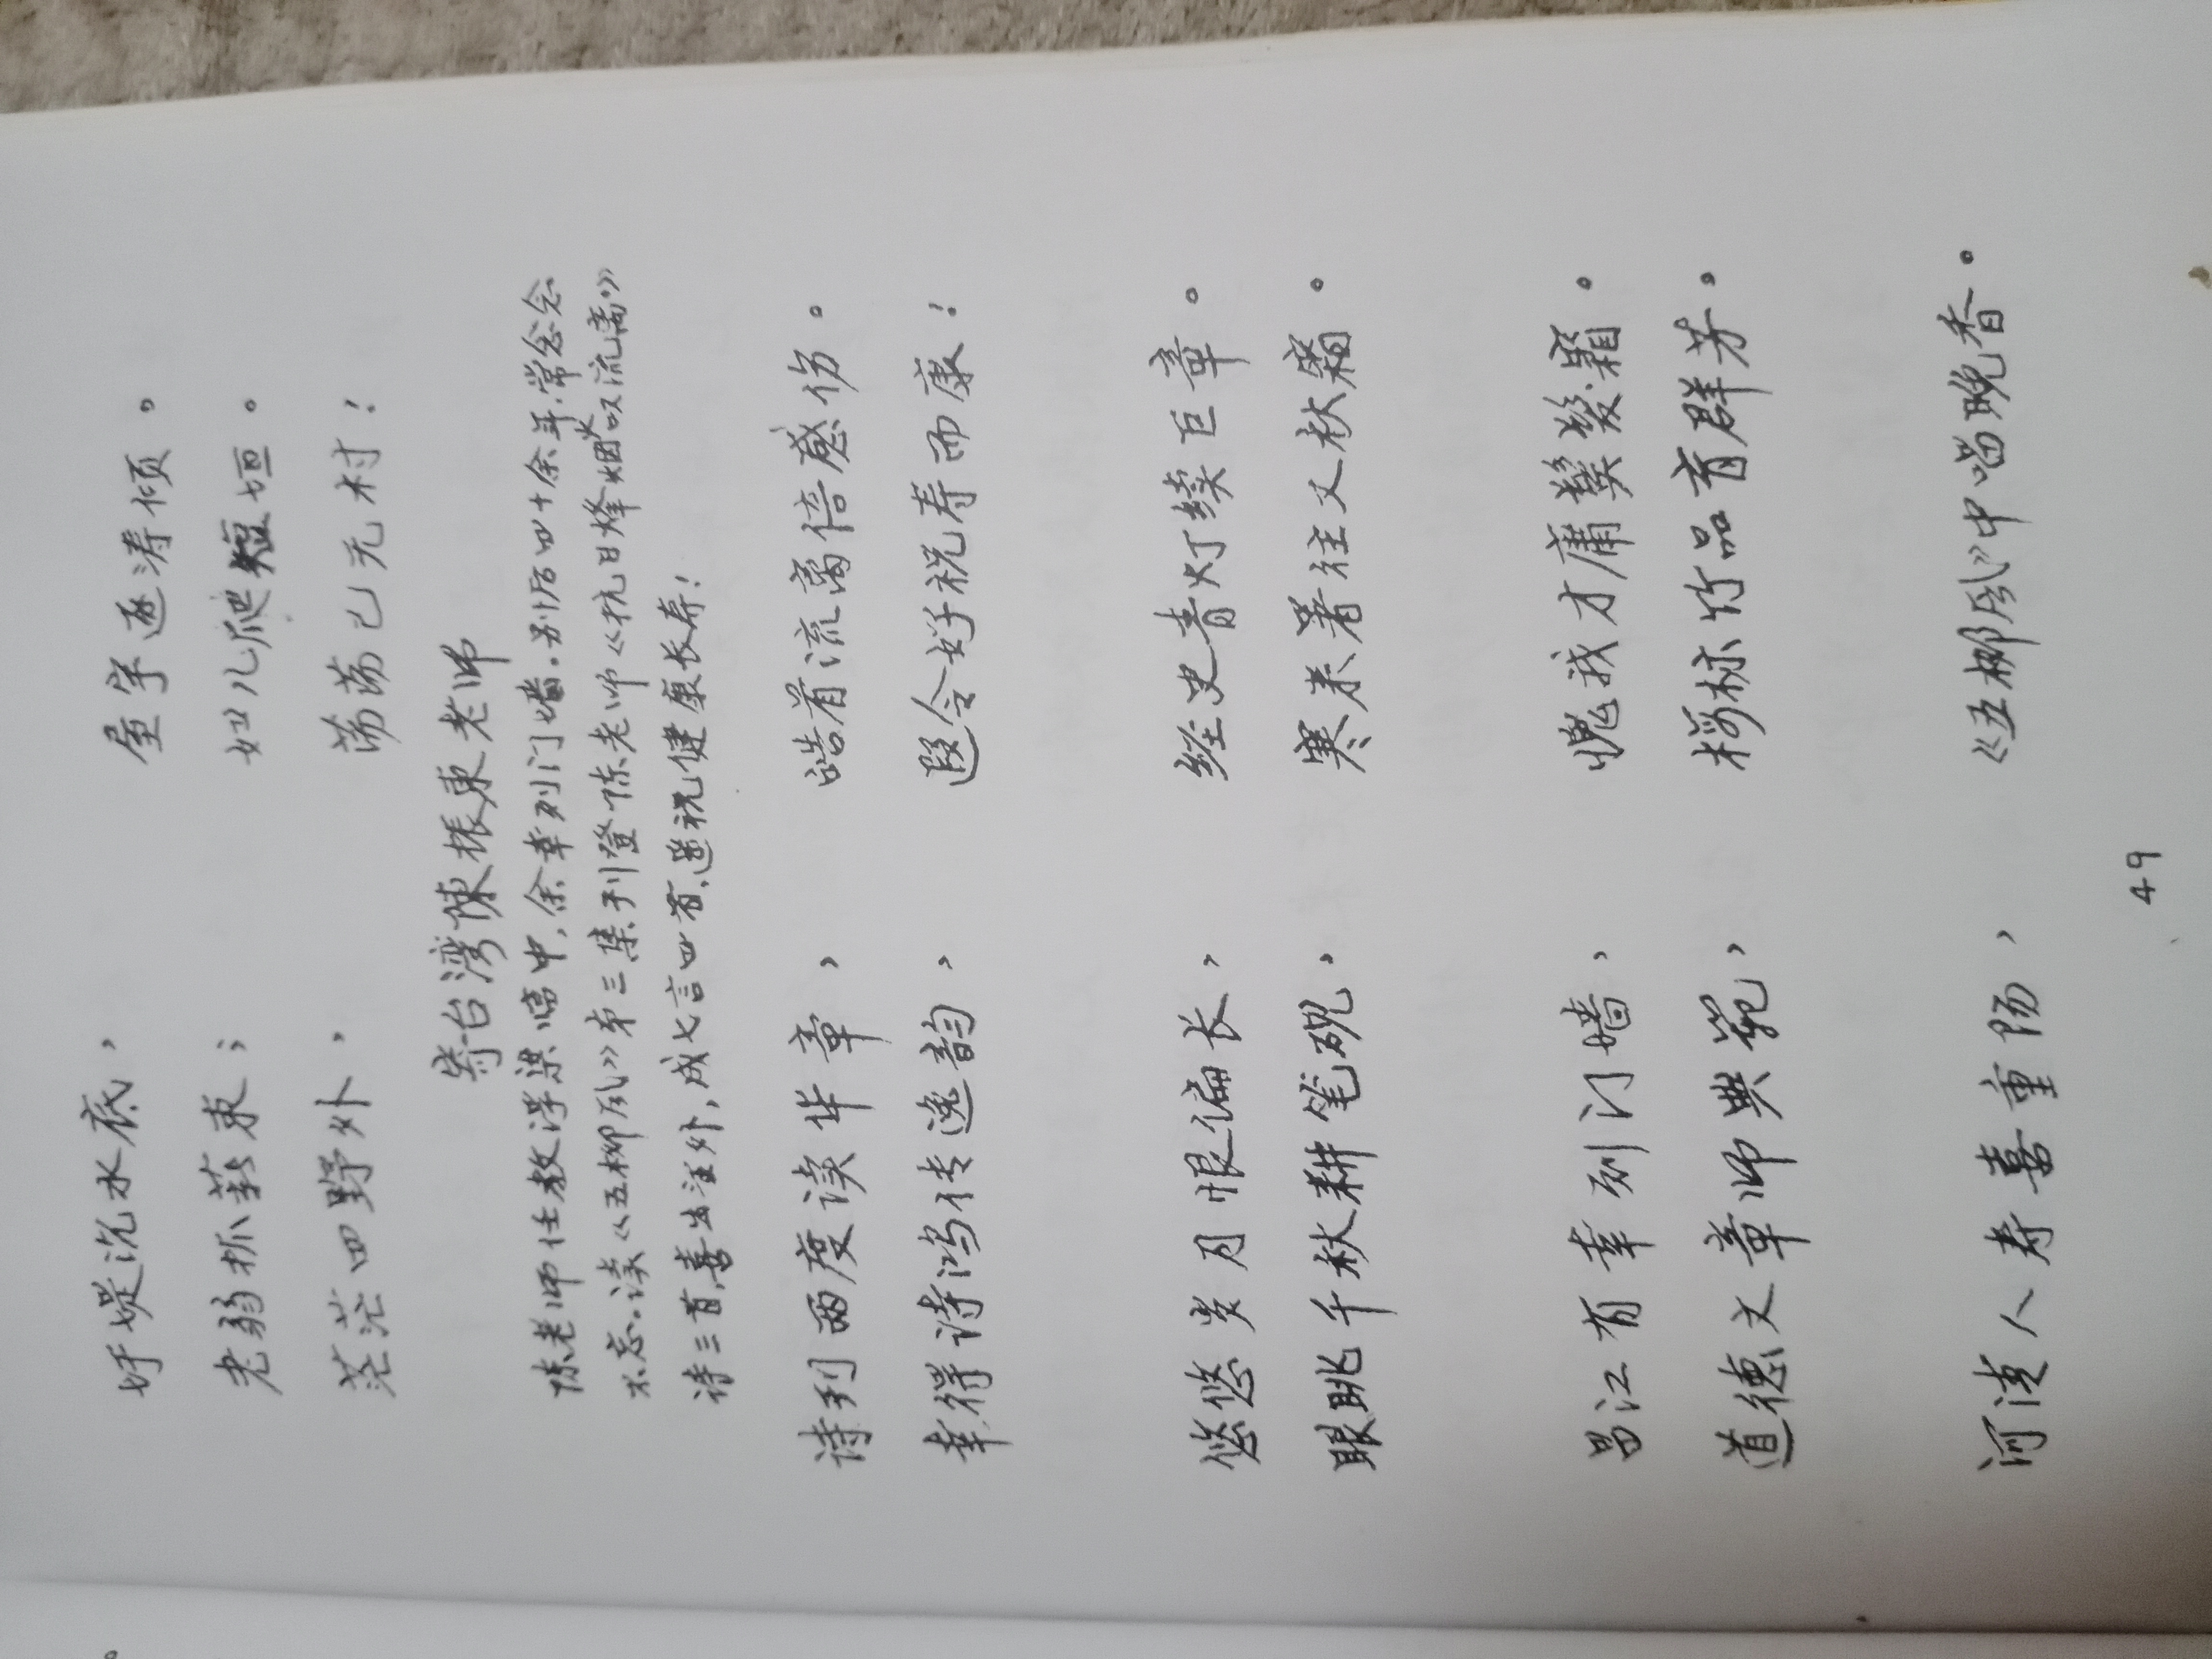 圩堤沉水底， 屋宇逐涛倾。
老弱抓薪束； 妇儿爬短垣。
茫茫四野外， 荡荡已无村！
寄台湾陳振東老师
陈老师任教浮梁高中，余幸列门墙。别后四十余年，常念念
不忘。读《五柳风》第三集刊登陈老师《抗日烽烟火叹流离》
诗三首，喜出望外，成七言四首，遥祝健康长寿！
诗刊两度读华章， 皓首流离倍感伤。
幸得诗鸿传逸韵， 遐令好祝寿而康！
悠悠岁月恨偏长， 经史青灯续巨章。
眼眺千秋耕笔砚， 寒来暑往又秋霜。
昌江有幸列门墙， 愧我才庸鬓发霜。
道德文章师典范， 标竹品育群芳。
河清人寿喜重阳， 《五柳风》中留晚香。
49